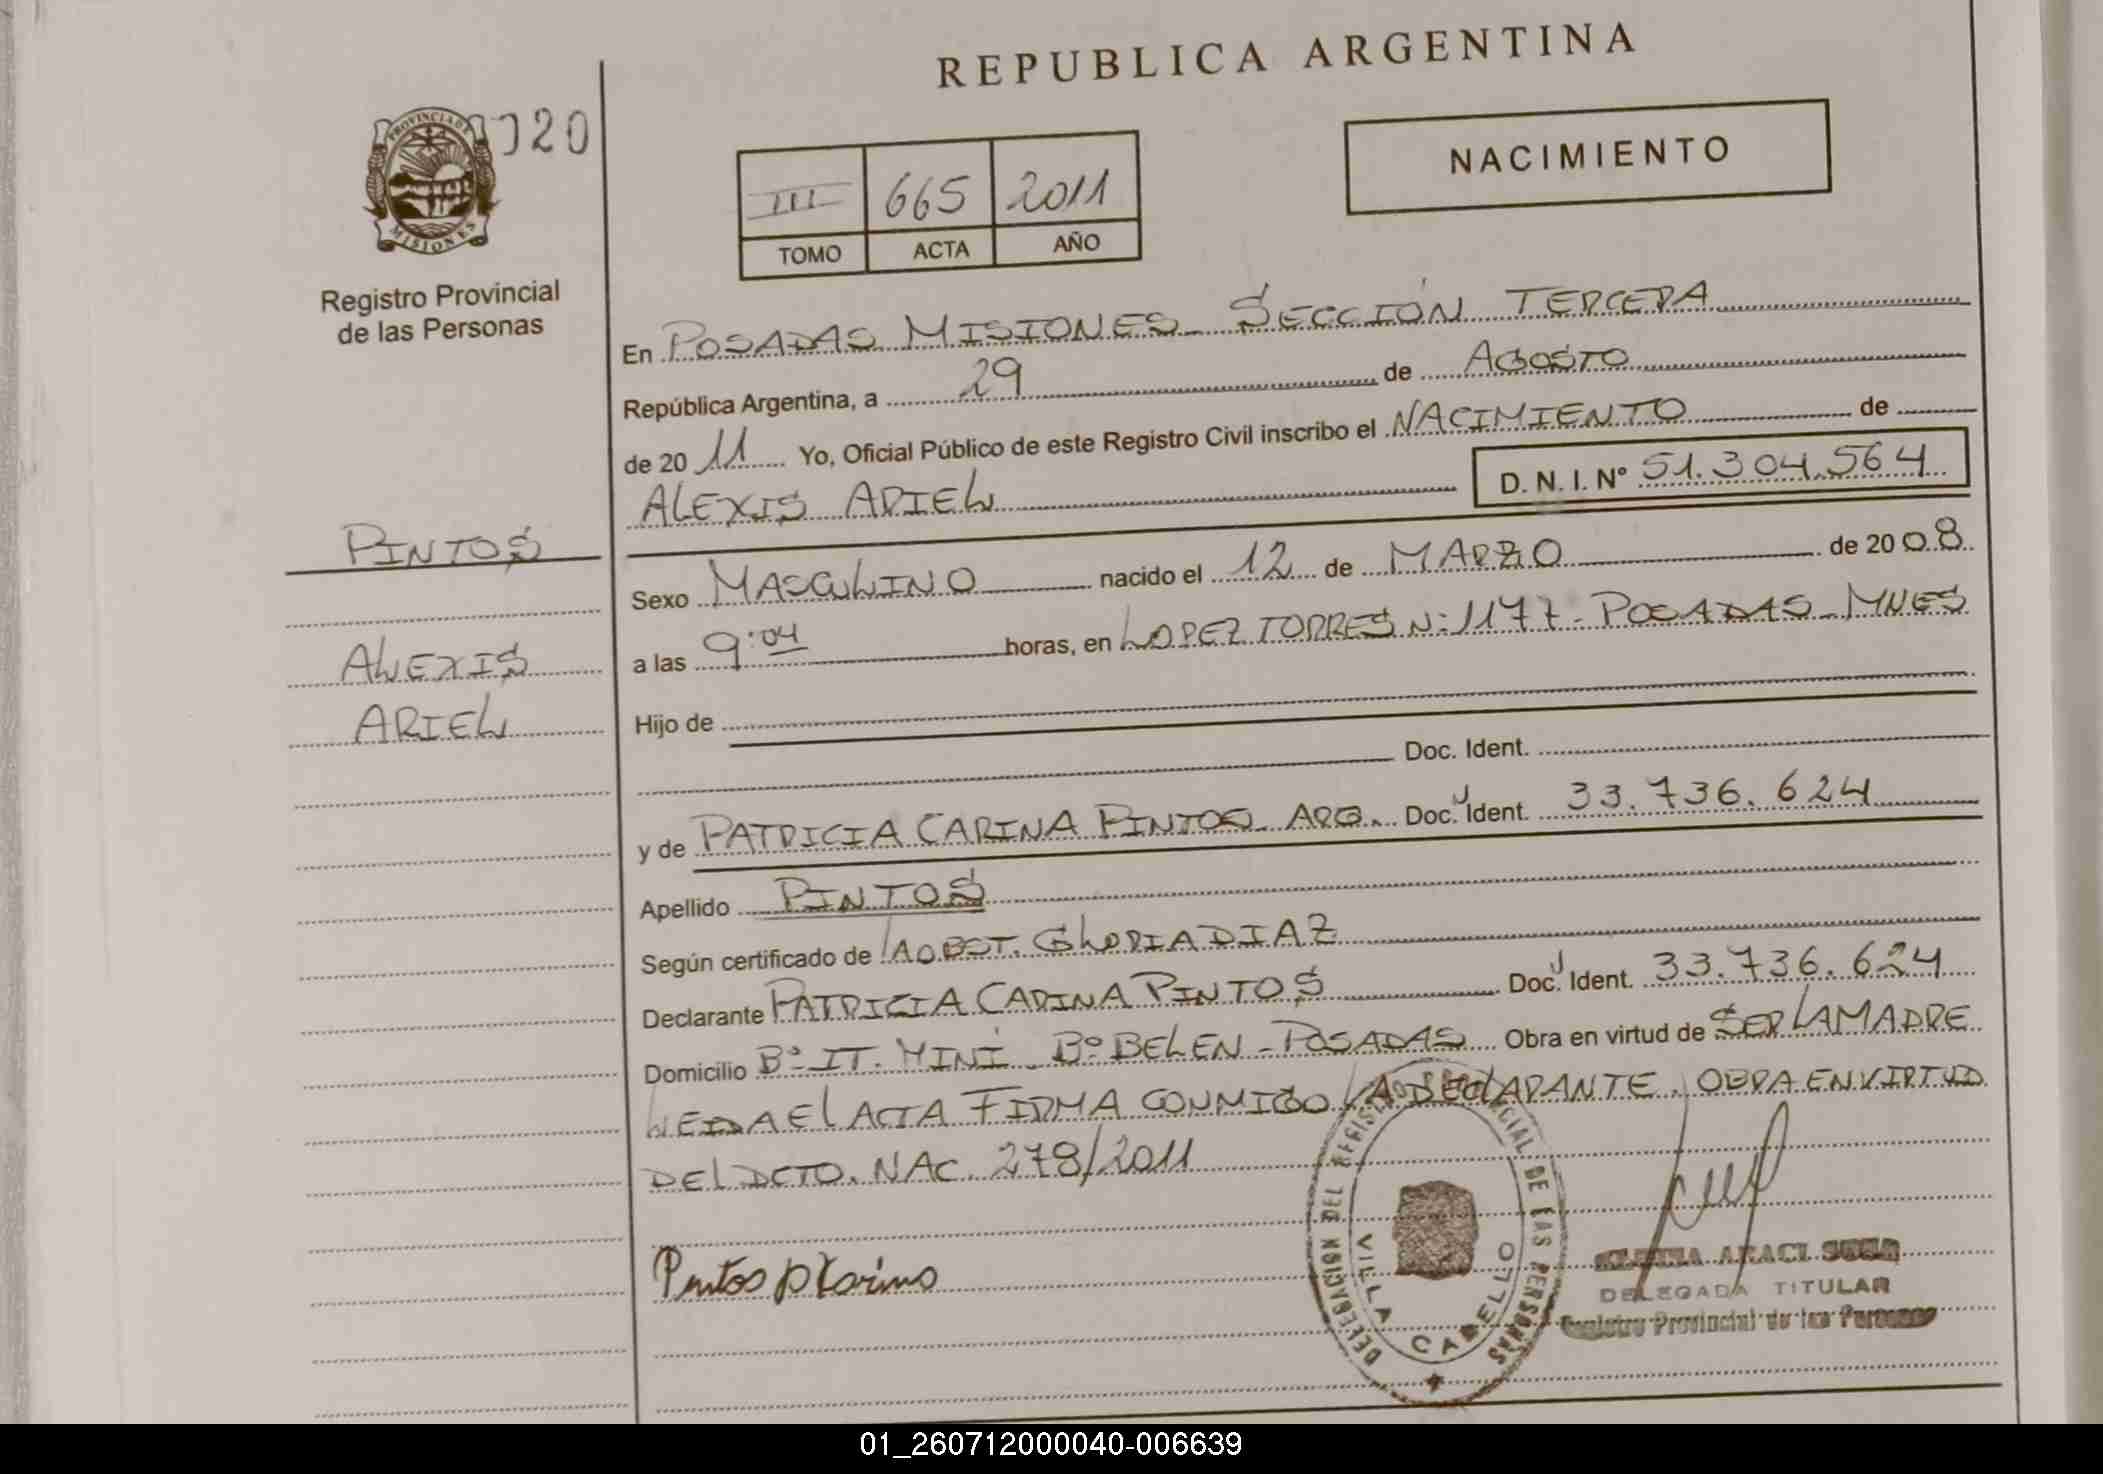 REPUBLICA ARGENTINA
020
PROVINCIA DE MISIONES
Registro Provincial
de las Personas
NACIMIENTO
III 665 2011
TOMO ACTA AÑO
En POSADAS MISIONES - SECCIÓN TERCERA
República Argentina, a 29 de AGOSTO
de 20 11 Yo, Oficial Público de este Registro Civil inscribo el NACIMIENTO de
ALEXIS ARIEL D. N. I. Nº 51.304.564
PINTOS
ALEXIS
ARIEL
Sexo MASCULINO nacido el 12 de MARZO de 20 08
a las 9:04 horas, en LOPEZ TORRES N: 1177 - POSADAS - MNES
Hijo de
Doc. Ident.
y de PATRICIA CARINA PINTOS - ARG. Doc. Ident. 33.736.624
Apellido PINTOS
Según certificado de LA OBST. GLORIA DIAZ
Declarante PATRICIA CARINA PINTOS Doc. Ident. 33.736.624
Domicilio Bº IT. MINÍ - Bº BELEN - POSADAS Obra en virtud de SER LA MADRE
LEIDA EL ACTA FIRMA CONMIGO LA DECLARANTE. OBRA EN VIRTUD
DEL DCTO. NAC. 278/2011
Pintos p Karina
DELEGACION DEL REGISTRO PROVINCIAL DE LAS PERSONAS
VILLA CABELLO
ARACI
DELEGADA TITULAR
Registro Provincial de las Personas
01_260712000040-006639